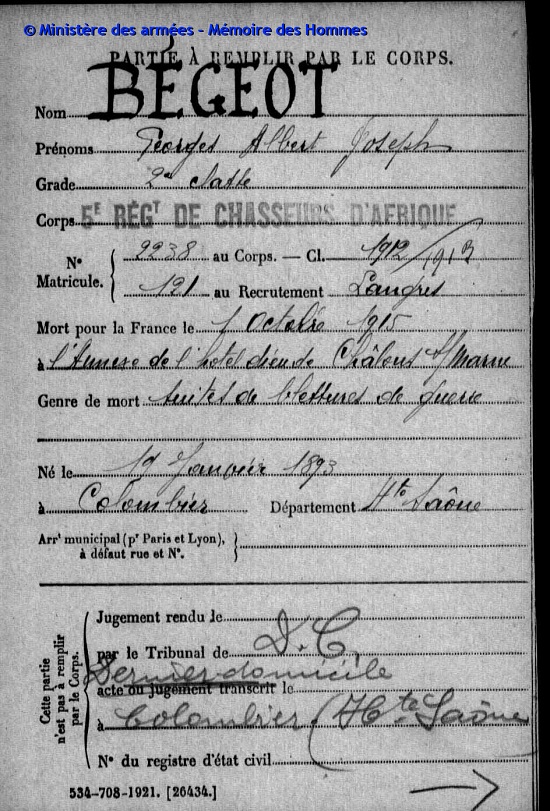 © Ministère des armées - Mémoire des Hommes
PARTIE À REMPLIR PAR LE CORPS.
Nom BÉGEOT
Prénoms Georges Albert Joseph
Grade 2e classe
Corps 5E RÉGT DE CHASSEURS D'AFRIQUE
N° Matricule. { 2238 au Corps. — Cl. 1912/1913
121 au Recrutement Langres
Mort pour la France le 1 Octobre 1915
à l'Annexe de l'hotel dieu de Châlons s/Marne
Genre de mort suites de blessures de guerre
Né le Janvier 1893
à Colombier Département Hte Saône
Arrt municipal (pr Paris et Lyon), }
à défaut rue et N°.
Cette partie n'est pas à remplir par le Corps.
Jugement rendu le
par le Tribunal de D.C.
Dernier domicile
acte ou jugement transcrit le
à Colombier (Hte Saône)
N° du registre d'état civil
534-708-1921. [26434.]